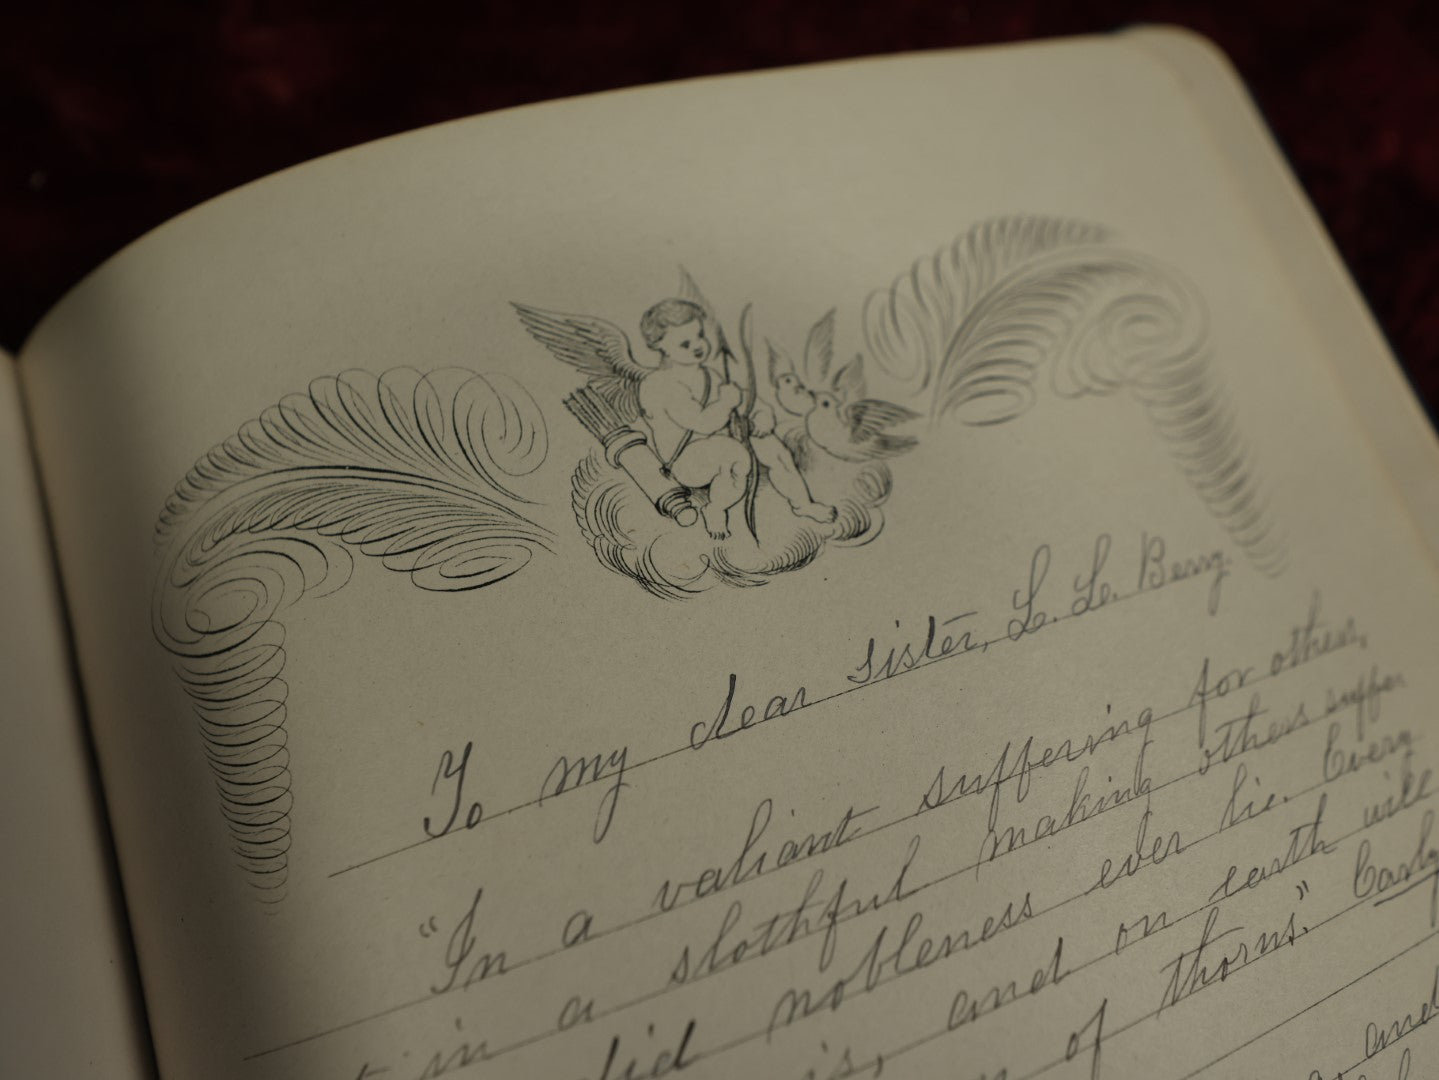 To my dear Sister, L. L. Berry.
"In a valiant suffering for others,
in a slothful making others suffer
did nobleness ever lie. Every
is, and on earth will
of thorns."
and